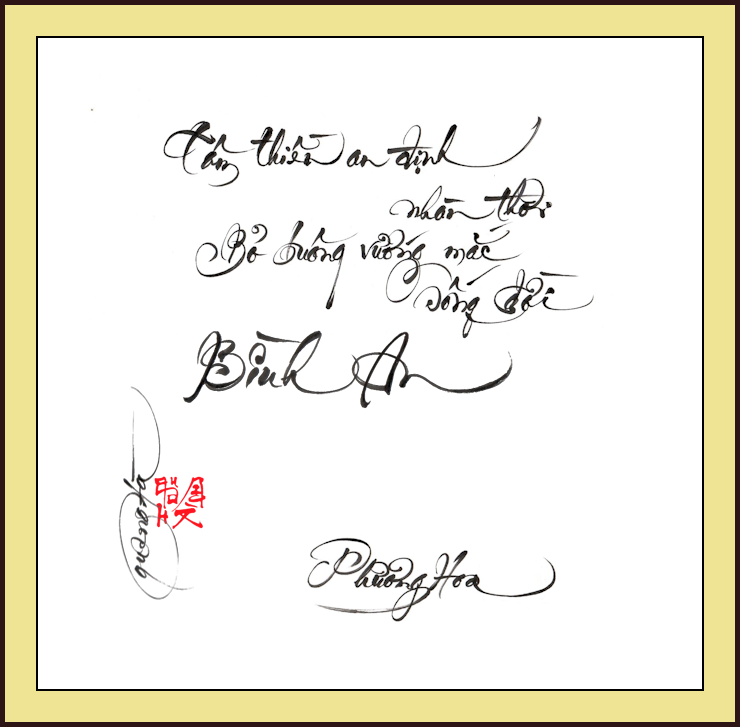 Tâm thiền an định
nhàn thời
Bỏ buông vướng mắc
sống đời
Bình An
Phương Hoa